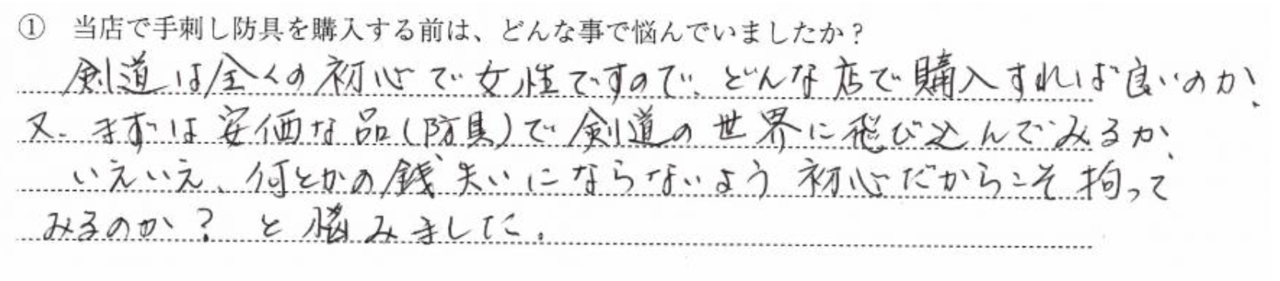 ① 当店で手刺し防具を購入する前は、どんな事で悩んでいましたか？
剣道は全くの初心で女性ですので、どんな店で購入すれば良いのか、
又、まずは安価な品(防具)で剣道の世界に飛び込んでみるか、
いえいえ、何とかの銭失いにならないよう初心だからこそ拘って
みるのか？と悩みました。